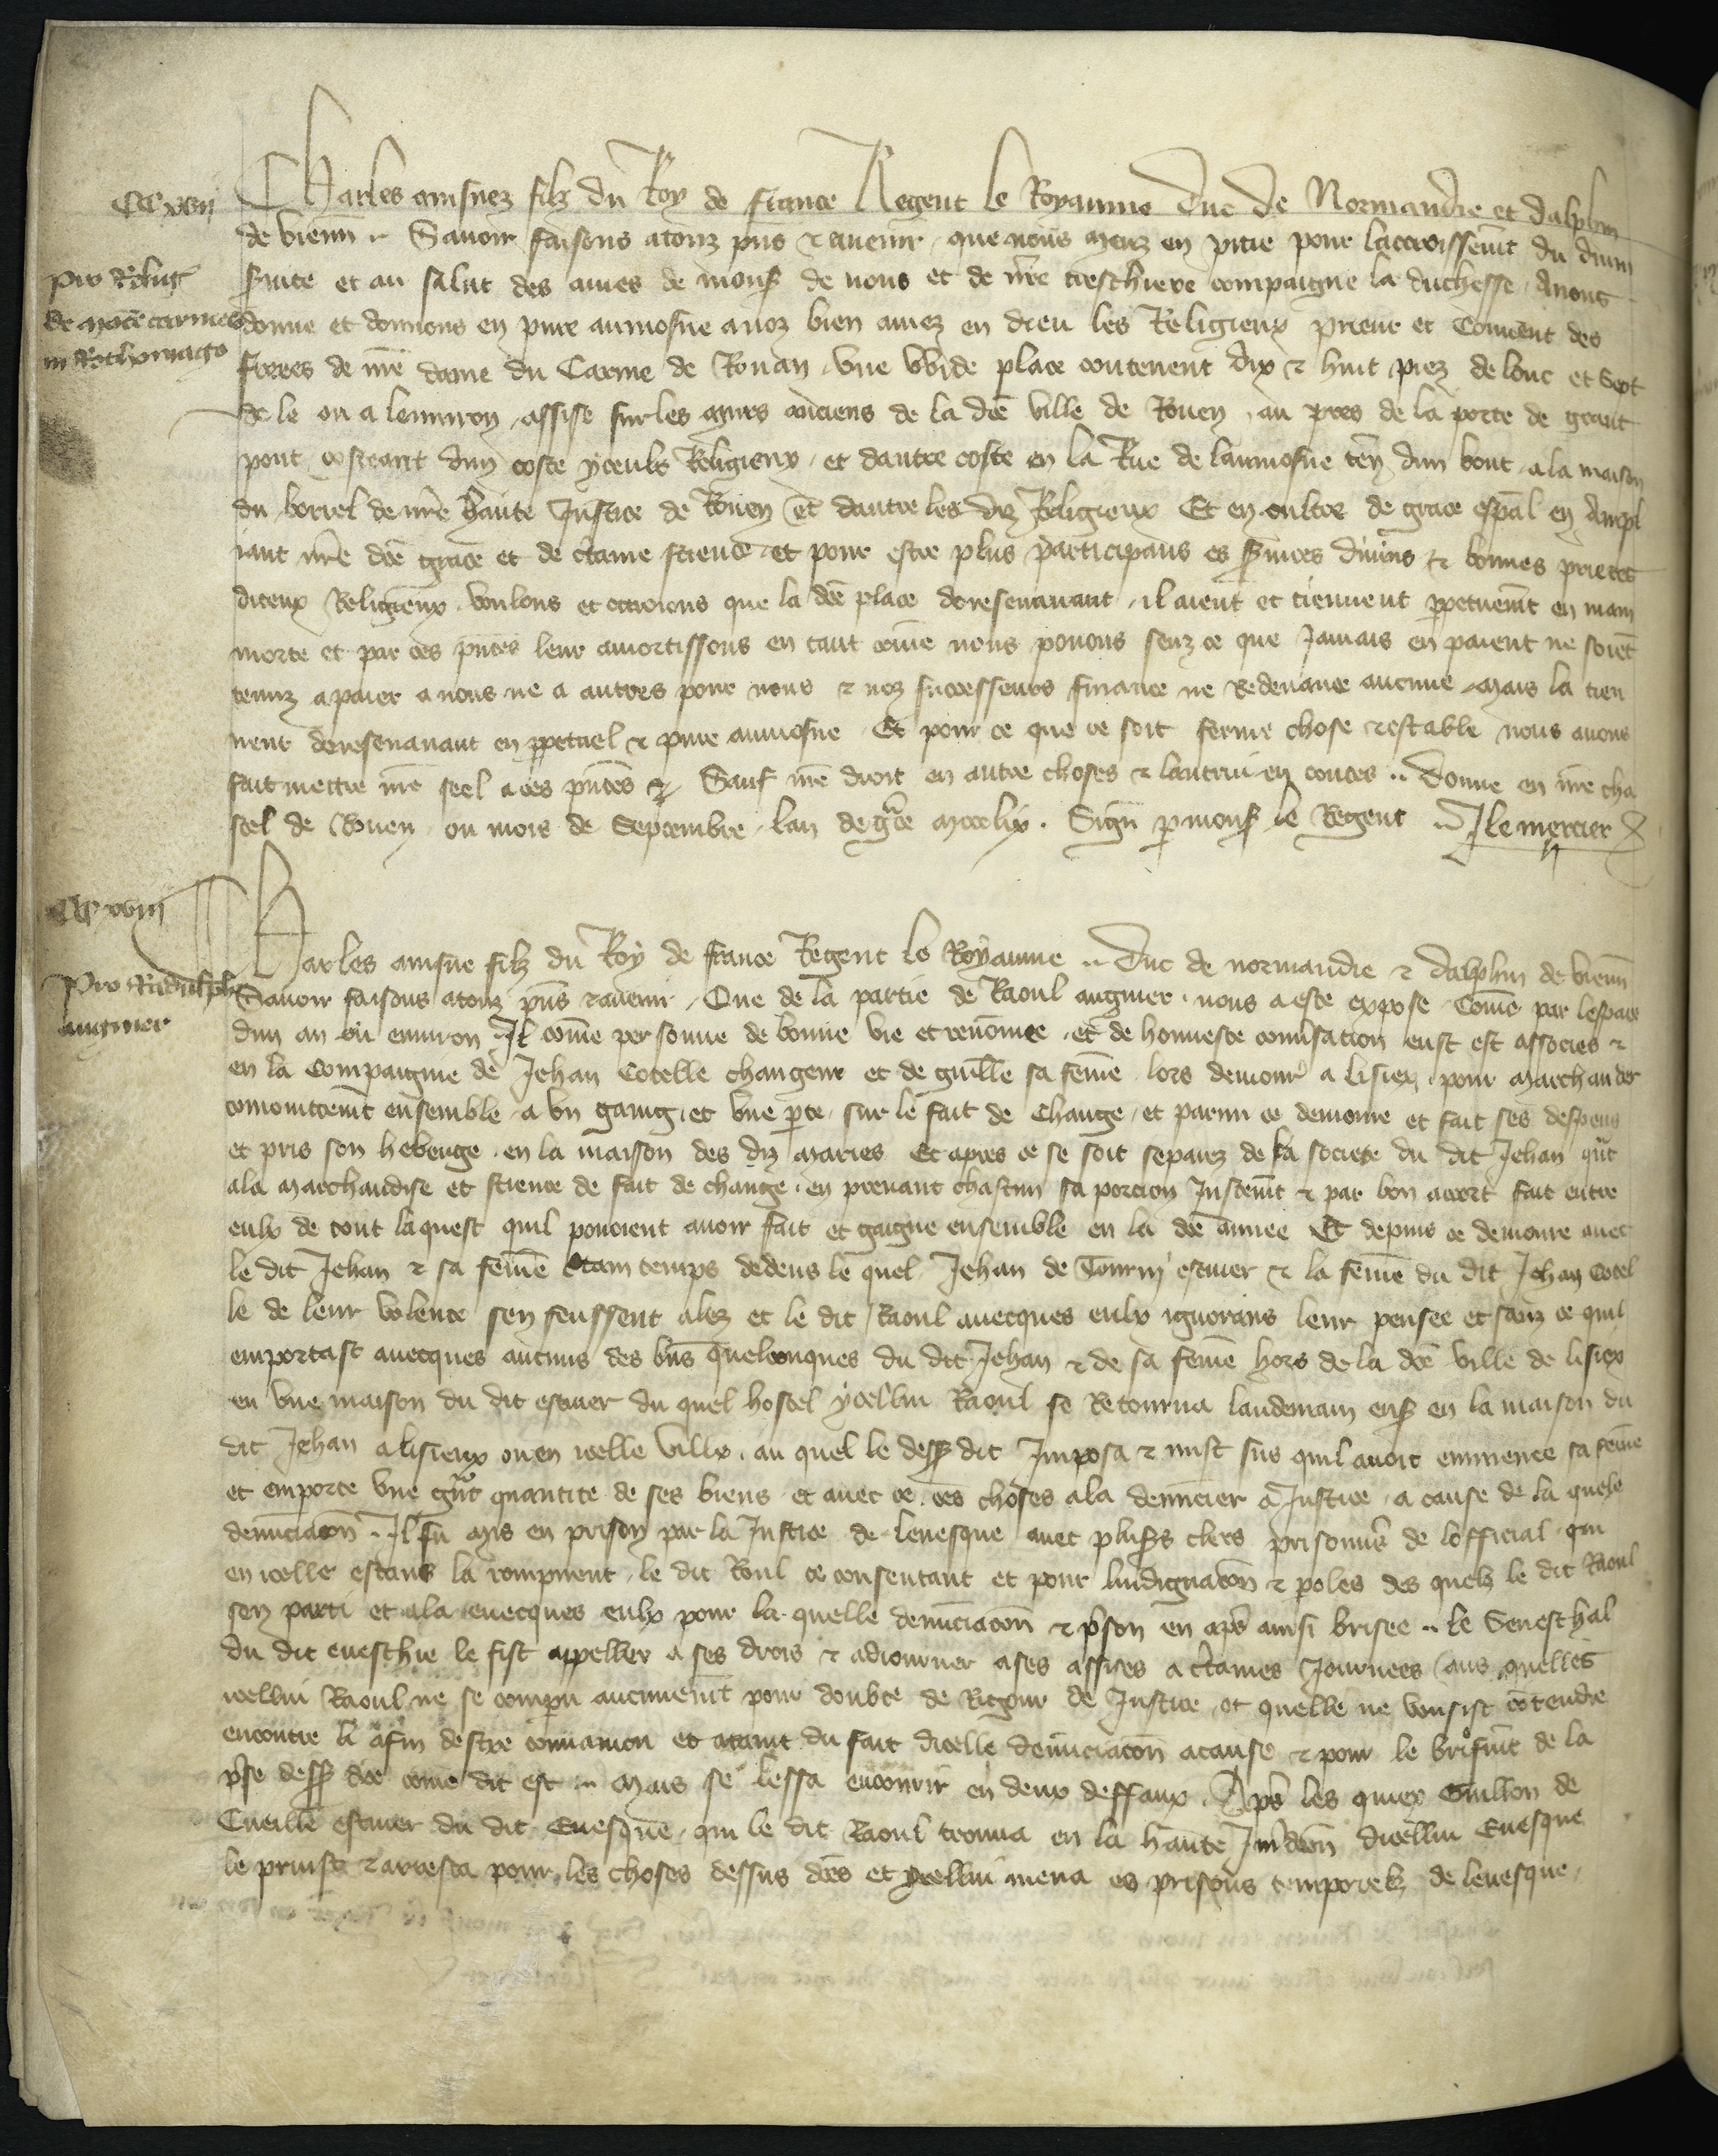 CCxvii
Charles ainsnez filz du Roy de france Regent le Royaume Duc de Normandie et dalphin
de vienn Savoir faisons a touz pns et avenir que nous meuz en pitie pour lacroissemt du divin
Pro Religs
service et au salut des ames de monss de nous et de nre treschiere compaigne la duchesse Avons
de monte carmeli
donne et donnons en pure aumosne a noz bien amez en dieu les Religieux prieur et Couvent des
in Rothomago
freres de nre dame du Carme de Rouan une vuide place contenent dix et huit piez de lonc et sept
de le ou a lenviron assise sur les murs anciens de la dce ville de Rouen au pres de la porte de grant
pont costeant dun coste yceuls Religieux et dautre coste en la Rue de laumosne dun bout a la maison
du borrel de nre haute Justice de Rouen et dautre les diz Religieux Et en oultre de grace espal en Ampl
iant nre dce grace et de ctaine science et pour estre plus participans es services divins et bonnes prieres
diceux Religieux voulons et octroions que la dce place doresenavant il aient et tiennent ppetuemt en main
morte et par ces pntes leur amortissons en tant come nous povons senz ce que Jamais en paient ne soiet
tenuz a paier a nous ne a autres pour nous et noz successeurs finance ne Redevance aucune Mais la tien
nent doresenavant en ppetuel et pure aumosne Et pour ce que ce soit ferme chose et estable nous avons
fait mettre nre seel a ces pntes Sauf nre droit en autre choses et lautrui en toutes .. Donne en nre cha
stel de Rouen ou mois de Septembre lan de gce mccclix. Sign p monss le Regent .. J le mercier
CCxviii
Charles ainsne filz du Roy de france Regent le Royaume .. Duc de normandie et dalphin de vienn
Pro Radulpho
Savoir faisons a touz pns et avenir Que de la partie de Raoul augnier nous a este expose Come par lespace
augnier
dun an ou environ Il come personne de bonne vie et renomee et de honneste convsation eust est associes et
en la Compaignie de Jehan Cotelle changeur et de guille sa feme lors demour a lisiex pour marchander
comunement ensemble a un gaing et une pte sur le fait de Change et parmi ce demoure et fait ses despens
et pris son heberge en la maison des diz maries Et apres ce se soit separez de la societe du dit Jehan qut
a la marchandise et science de fait de change en prenant chascun sa porcion Justemt et par bon acort fait entre
eulx de tout laquest quil povoient avoir fait et gaigne ensemble en la dce annee Et depuis ce demoure avec
le dit Jehan et sa feme ctain temps dedens le quel Jehan de Tourny escuier et la feme du dit Jehan Cotel
le de leur volente sen feussent alez et le dit Raoul avecques eulx ignorans leur pensee et sanz ce quil
emportast avecques aucuns des bns quelconques du dit Jehan et de sa feme hors de la dce ville de lisiex
en une maison du dit escuier du quel hostel ycellui Raoul se Retourna landemain ens en la maison du
dit Jehan a lisieux ou en icelle ville au quel le dess dit Imposa et mist sus quil avoit enmenee sa feme
et emporte une gnt quantite de ses biens et avec ce ces choses a la denuncier a Justice a cause de la quele
denunciacon .. Il fu mis en prison par la Justice de levesque avec pluss clers prisonns de lofficial qui
en icelle estans la rompirent le dit Roul ce consentant et pour lindignacon et poles des quelz le dit Raoul
sen parti et ala avecques eulx pour la quelle denunciacon et pson en aps ainsi brisee .. le Seneschal
du dit eveschie le fist appeller a ses drois et adiourner a ses assises a ctaines Journees aus quelles
icellui Raoul ne se compu aucunemt pour doubte de Rigour de Justice et quelle ne vousist cotendre
encontre li afin destre convaincu et ataint du fait dicelle denunciacon a cause et pour le brisemt de la
pse dess dce come dit est .. Mais se lessa encourir en deux deffaux Aps les quiex Guillon de
Cueille escuier du dit Evesque qui le dit Raoul trouva en la haute Juridcon dicellui Evesque
le prinst et arresta pour les choses dessus dces et ycellui mena es prisons temporelz de levesque